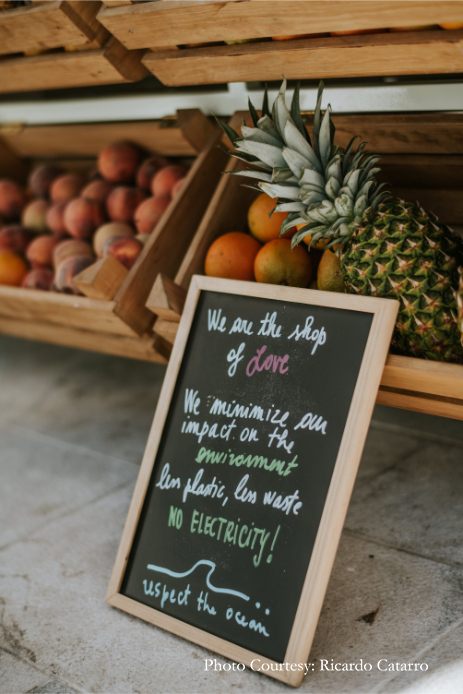 We are the shop
of Love
We minimize our
impact on the
environment
less plastic, less waste
NO ELECTRICITY!
respect the ocean
Photo Courtesy: Ricardo Catarro